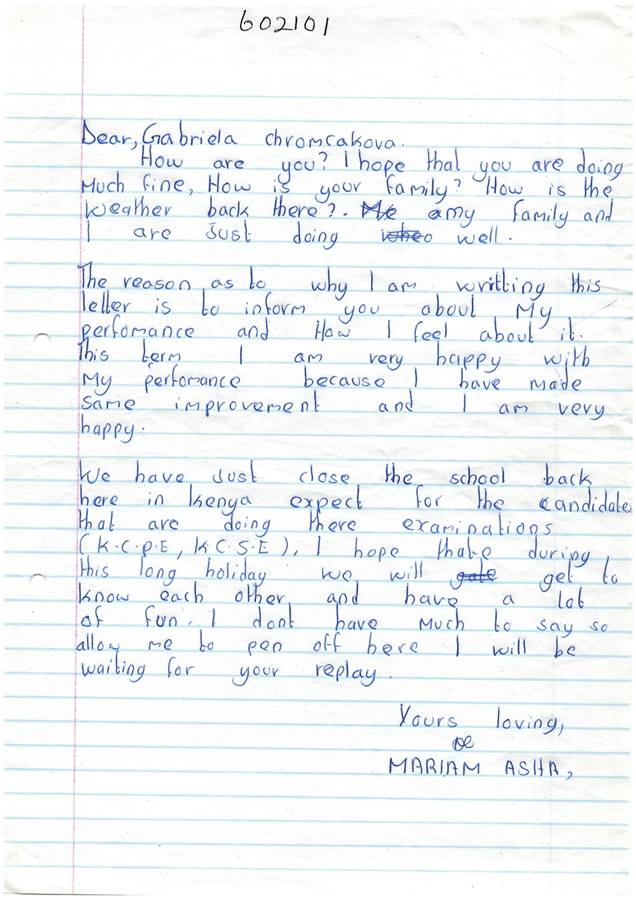 602101
Dear, Gabriela chromcakova.
How are you? I hope that you are doing
Much fine, How is your family? How is the
weather back there?. Me amy family and
I are Just doing so well.
The reason as to why I am writting this
letter is to inform you about My
perfomance and How I feel about it.
This term I am very happy with
My perfomance because I have made
same improvement and I am very
happy.
We have Just close the school back
here in kenya expect for the candidate
that are doing there examinations
(K.C.P.E, K.C.S.E). I hope thate during
this long holiday we will gate get to
know each other and have a lot
of fun. I dont have Much to say so
allow me to pen off here I will be
waiting for your replay.
Yours loving,
MARIAM ASHA,